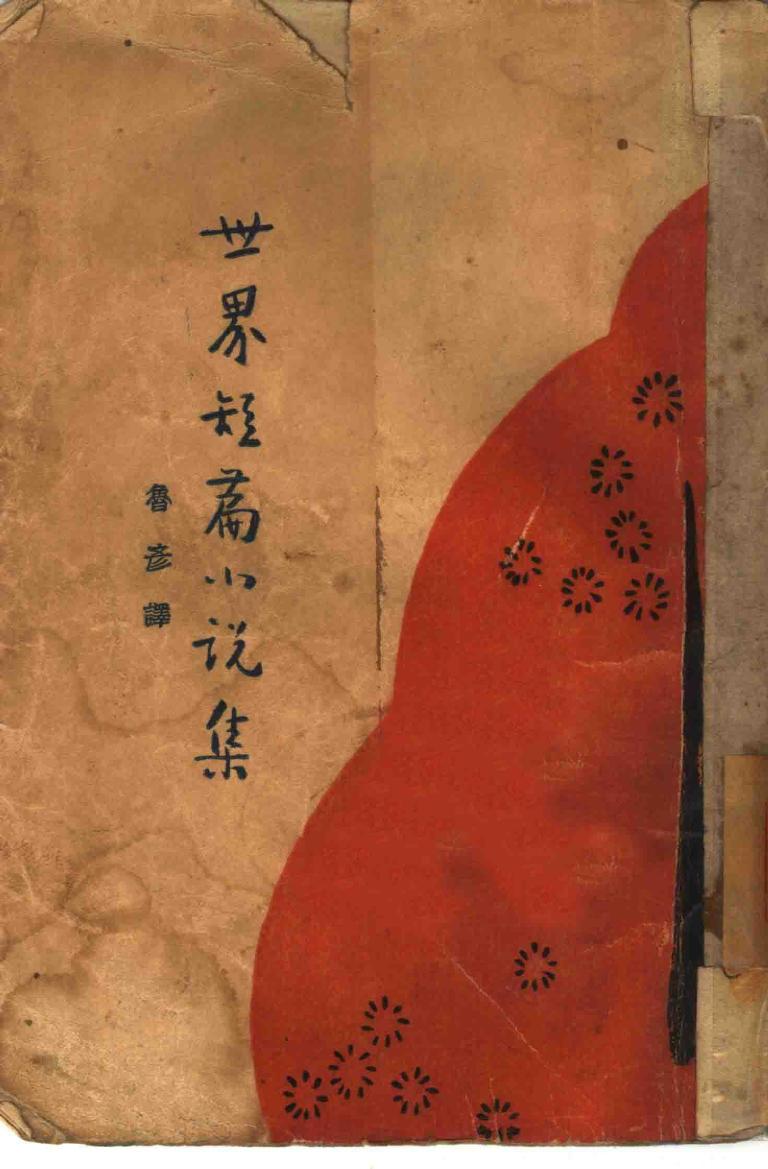 世界短篇小说集
魯彦譯